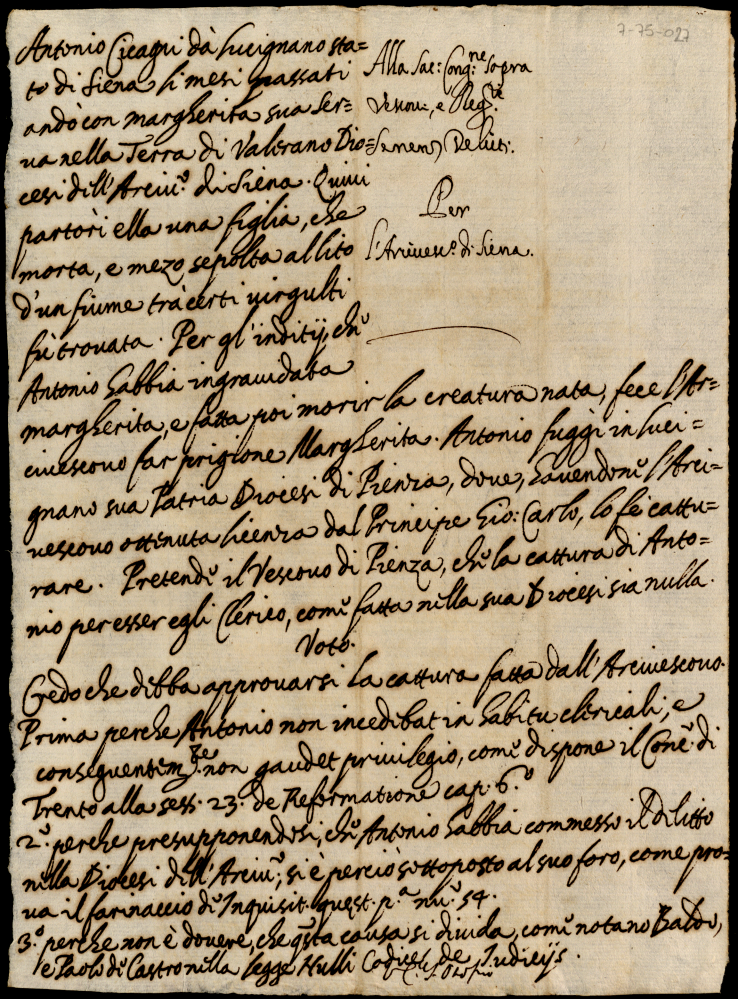 7-75-027
Antonio Cicagni dà Lucignano sta=
to di Siena li mesi passati
andò con margherita sua ser=
va nella Terra di Valerano Dio=
cesi dell'Arciu.o di Siena. Quiui
partorì ella una figlia, che
morta, e mezo sepolta al lito
d'un fiume trà certi uirgulti
fù trouata. Per gl'inditij, che
Antonio habbia ingrauidata
Alla Sac: Cong.ne sopra
Vescou:, e Reg.ri
Senen, Delicti.
Per
l'Arciuesc.o di Siena.
margherita, e fatta poi morir la creatura nata, fece l'Ar=
ciuescouo far prigione Margherita. Antonio fuggì in Luci=
gnano sua Patria Diocesi di Pienza, doue, hauendone l'Arci=
uescouo ottenuta licenza dal Principe Gio: Carlo, lo fè cattu=
rare. Pretende il Vescouo di Pienza, che la cattura di Anto=
nio per esser egli Clerico, come fatta nella sua Diocesi sia nulla.
Voto.
Credo che debba approuarsi la cattura fatta dall'Arciuescouo.
Prima perche Antonio non incedebat in habitu clericali, e
conseguentem.te non gaudet priuilegio, come dispone il Conc. di
Trento alla sess. 23. de Reformatione cap. 6.o
2.o perche presupponendosi, che Antonio habbia commesso il delitto
nella Diocesi dell'Arciu.o, si è perciò sottoposto al suo foro, come pro=
ua il farinaccio de Inquisit. quest. p.a nu.o 54.
3.o perche non è douere, che q.sta causa si diuida, come notano Baldo,
e Paolo de Castro nella legge Nulli Codice de Iudicijs.